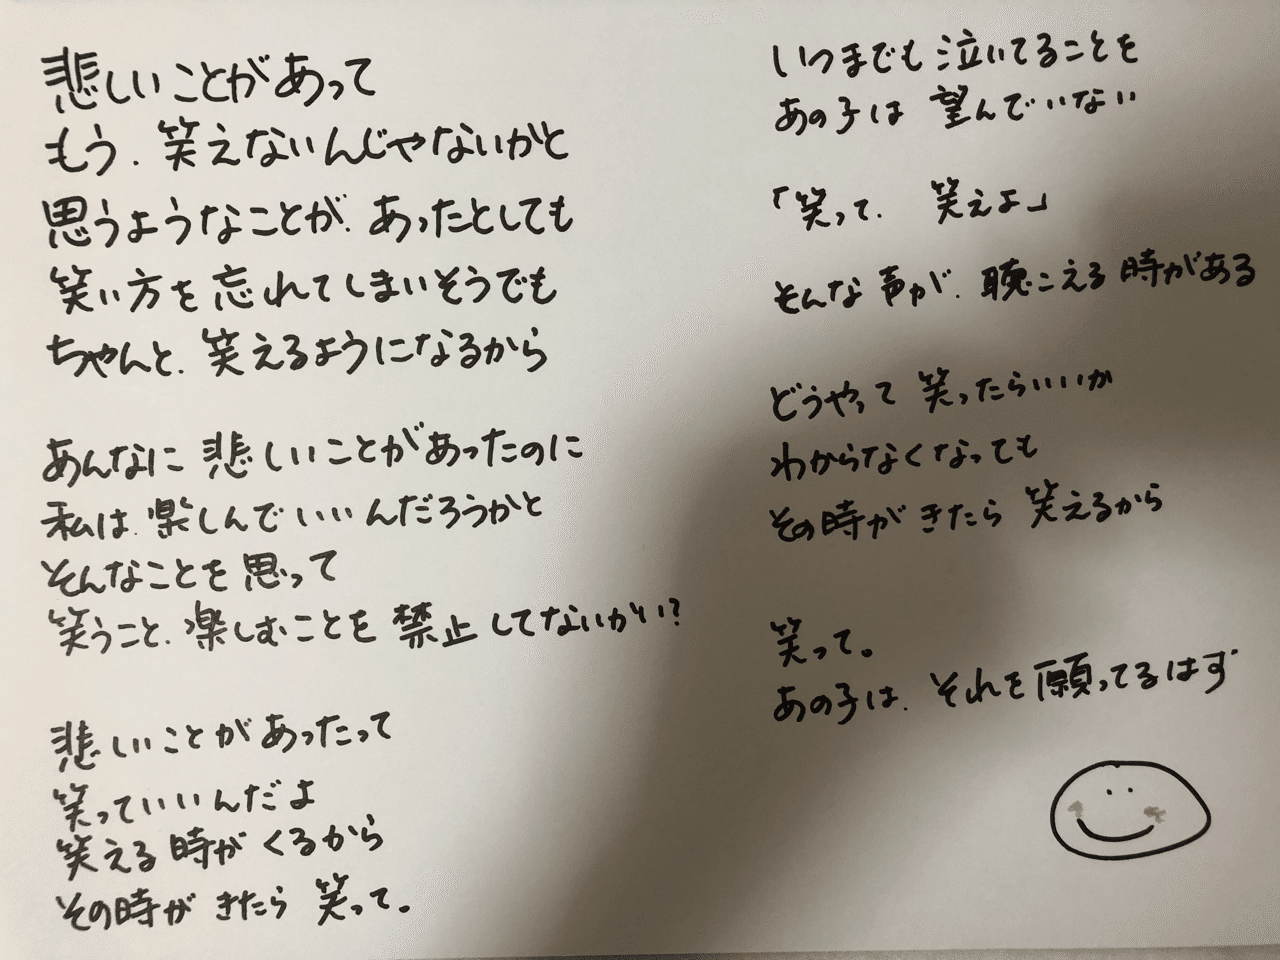 悲しいことがあって
もう、笑えないんじゃないかと
思うようなことが、あったとしても
笑い方を忘れてしまいそうでも
ちゃんと、笑えるようになるから
あんなに悲しいことがあったのに
私は、楽しんでいいんだろうかと
そんなことを思って
笑うこと、楽しむことを禁止してないかい?
悲しいことがあったって
笑っていいんだよ
笑える時がくるから
その時がきたら笑って。
いつまでも泣いてることを
あの子は望んでいない
「笑って、笑えよ」
そんな声が、聴こえる時がある
どうやって笑ったらいいか
わからなくなっても
その時がきたら笑えるから
笑って。
あの子は、それを願ってるはず